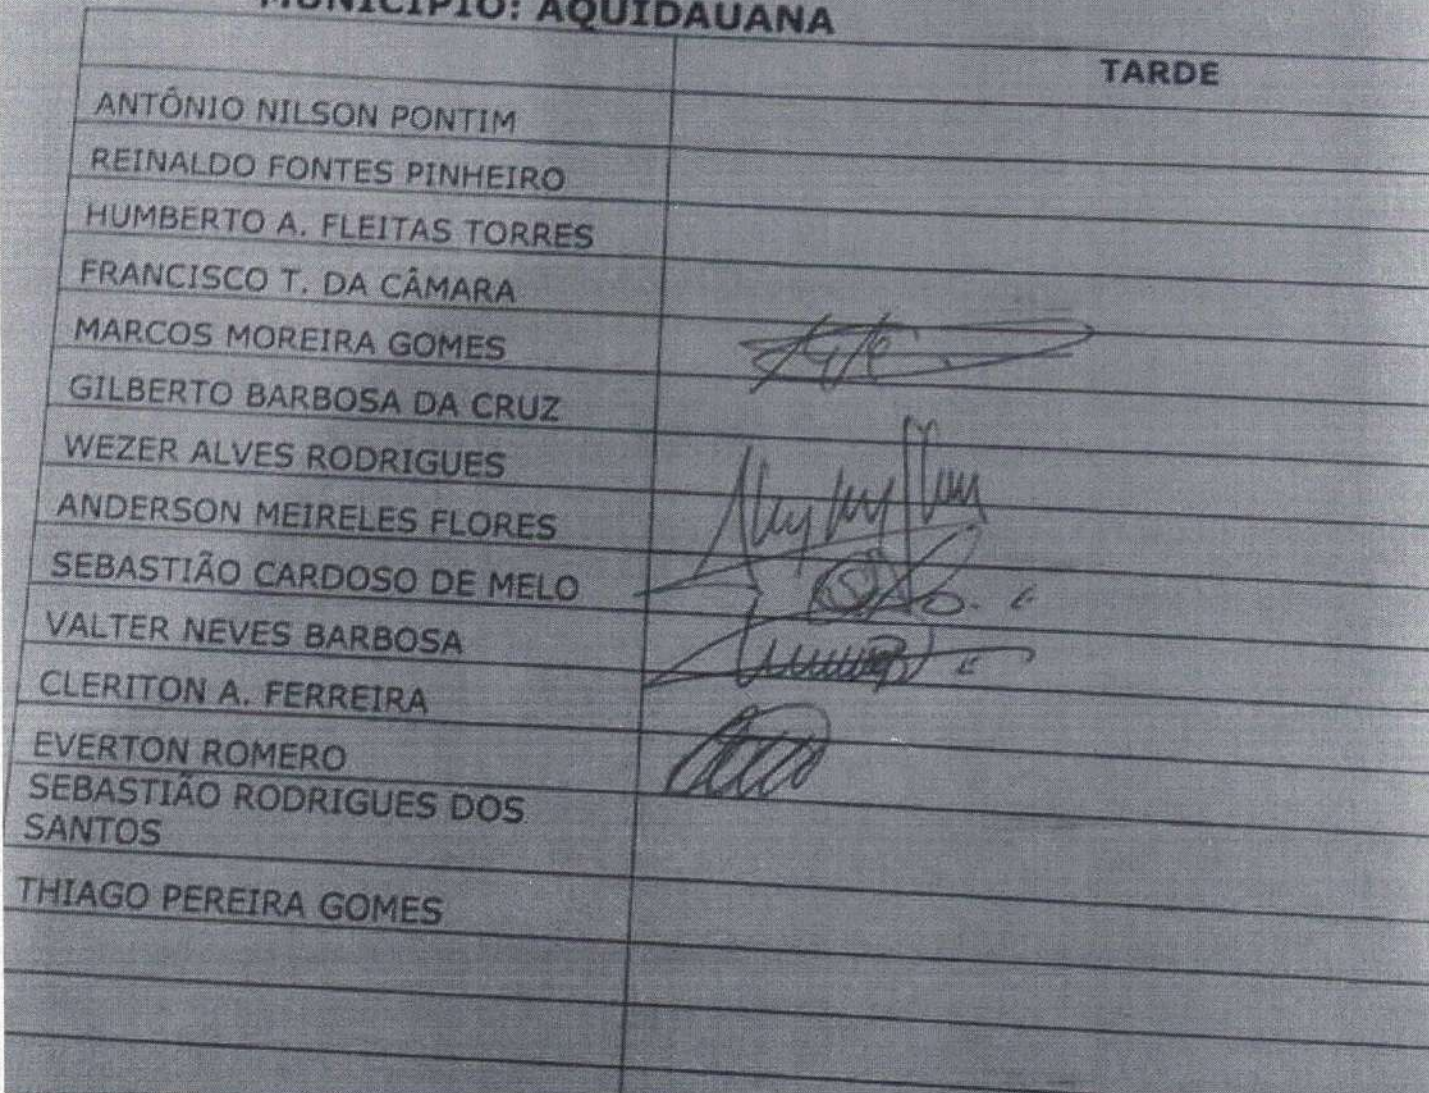 MUNICÍPIO: AQUIDAUANA
TARDE
ANTÔNIO NILSON PONTIM
REINALDO FONTES PINHEIRO
HUMBERTO A. FLEITAS TORRES
FRANCISCO T. DA CÂMARA
MARCOS MOREIRA GOMES
GILBERTO BARBOSA DA CRUZ
WEZER ALVES RODRIGUES
ANDERSON MEIRELES FLORES
SEBASTIÃO CARDOSO DE MELO
VALTER NEVES BARBOSA
CLERITON A. FERREIRA
EVERTON ROMERO
SEBASTIÃO RODRIGUES DOS
SANTOS
THIAGO PEREIRA GOMES